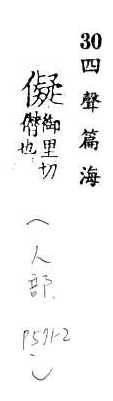 30 四聲篇海
儗 御里切
僭也
(人部 P591-2)